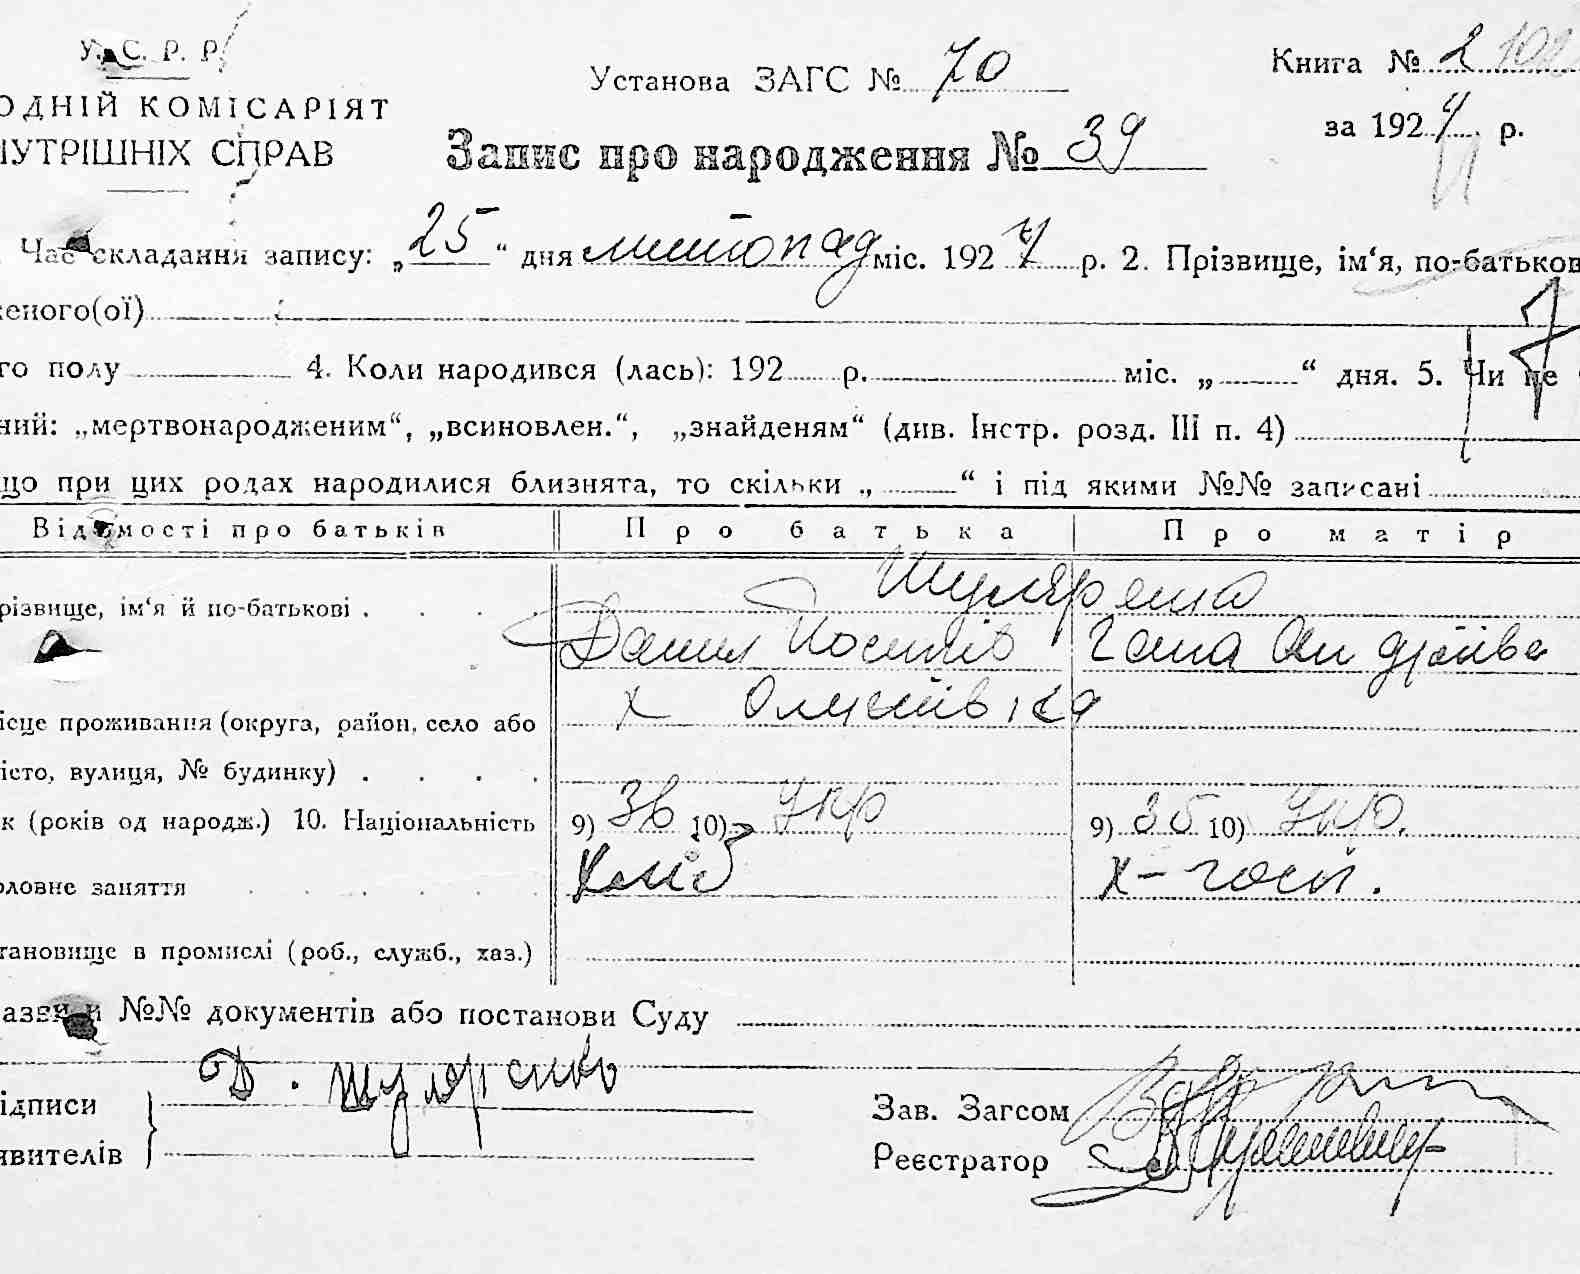 У. С. Р. Р.
ОДНІЙ КОМІСАРІЯТ
НУТРІШНІХ СПРАВ
Установа ЗАГС № 70
Книга № 2
за 1927 р.
Запис про народження № 39
Час складання запису: „25“ дня листопад міс. 1927 р. 2. Прізвище, ім‘я, по-батьков
женого(ої)
го полу 4. Коли народився (лась): 192 р. міс. „ “ дня. 5. Чи не
ний: „мертвонародженим“, „всиновлен.“, „знайденям“ (див. Інстр. розд. III п. 4)
що при цих родах народилися близнята, то скільки „ “ і під якими №№ записані
Відомості про батьків Про батька Про матір
різвище, ім‘я й по-батькові . . . .
Данил Гана
ісце проживання (округа, район, село або х
істо, вулиця, № будинку) . . . .
к (років од народж.) 10. Національність 9) 36 10) Укр 9) 35 10) Укр.
оловне заняття . . . . . . Хліб х-госп.
тановище в промислі (роб., служб., хаз.)
азви й №№ документів або постанови Суду
Д. Шуляренко
ідписи
явителів
Зав. Загсом
Реєстратор